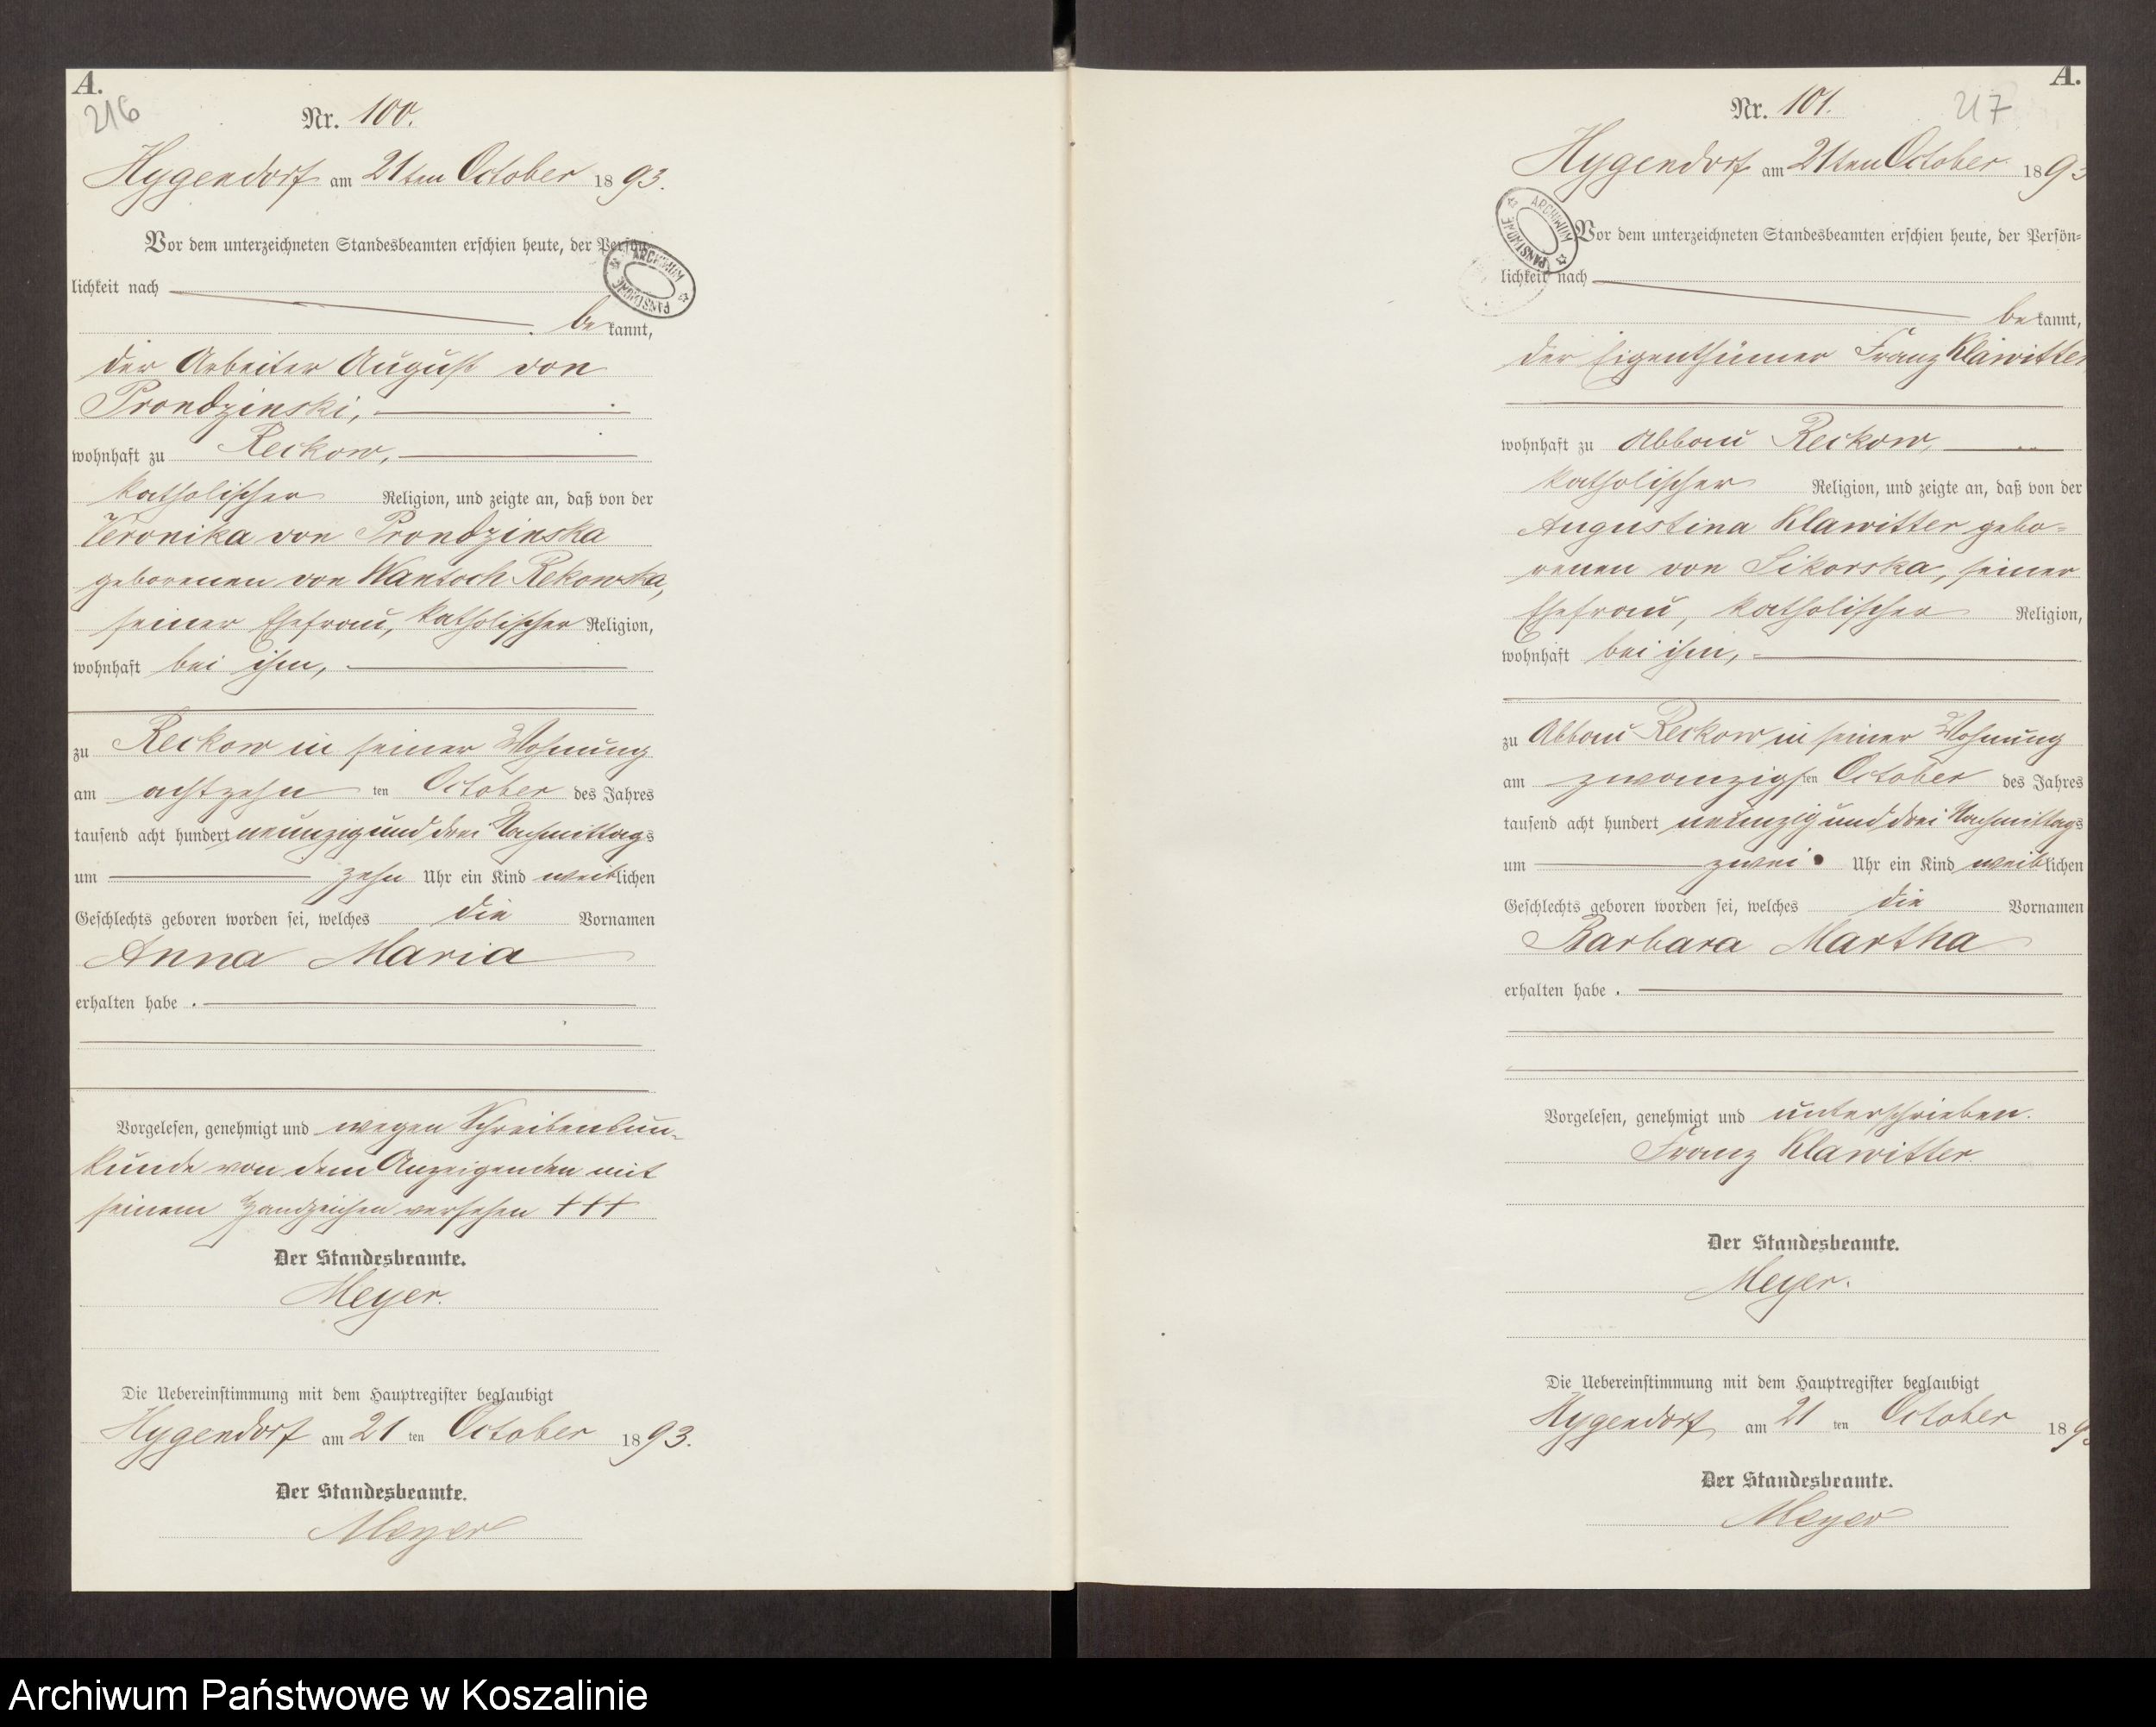 A.
216
Nr. 100.
Hygendorf am 21ten October 1893.
Vor dem unterzeichneten Standesbeamten erschien heute, der Persön-
lichkeit nach
bekannt,
der Arbeiter August von
Prondzinski,
wohnhaft zu Reckow,
katholischer Religion, und zeigte an, daß von der
Veronika von Prondzinska
geborenen von Wantoch Rekowska,
seiner Ehefrau, katholischer Religion,
wohnhaft bei ihm,
zu Reckow in seiner Wohnung
am achtzehn ten October des Jahres
tausend acht hundert neunzig und drei Nachmittags
um zehn Uhr ein Kind weiblichen
Geschlechts geboren worden sei, welches die Vornamen
Anna Maria
erhalten habe.
Vorgelesen, genehmigt und wegen Schreibensun-
kunde von dem Anzeigenden mit
seinem Handzeichen versehen +++
Der Standesbeamte.
Meyer.
Die Uebereinstimmung mit dem Hauptregister beglaubigt
Hygendorf am 21 ten October 1893.
Der Standesbeamte.
Meyer
ARCHIWUM PAŃSTWOWE
A.
217
Nr. 101.
Hygendorf am 21ten October 1893
ARCHIWUM PAŃSTWOWE
Vor dem unterzeichneten Standesbeamten erschien heute, der Persön-
lichkeit nach
bekannt,
der Eigenthümer Franz Klawitter
wohnhaft zu Abbau Reckow,
katholischer Religion, und zeigte an, daß von der
Augustina Klawitter gebo-
renen von Sikorska, seiner
Ehefrau, katholischer Religion,
wohnhaft bei ihm,
zu Abbau Reckow in seiner Wohnung
am zwanzigsten October des Jahres
tausend acht hundert neunzig und drei Nachmittags
um zwei Uhr ein Kind weiblichen
Geschlechts geboren worden sei, welches die Vornamen
Barbara Martha
erhalten habe.
Vorgelesen, genehmigt und unterschrieben.
Franz Klawitter.
Der Standesbeamte.
Meyer.
Die Uebereinstimmung mit dem Hauptregister beglaubigt
Hygendorf am 21 ten October 189
Der Standesbeamte.
Meyer
Archiwum Państwowe w Koszalinie